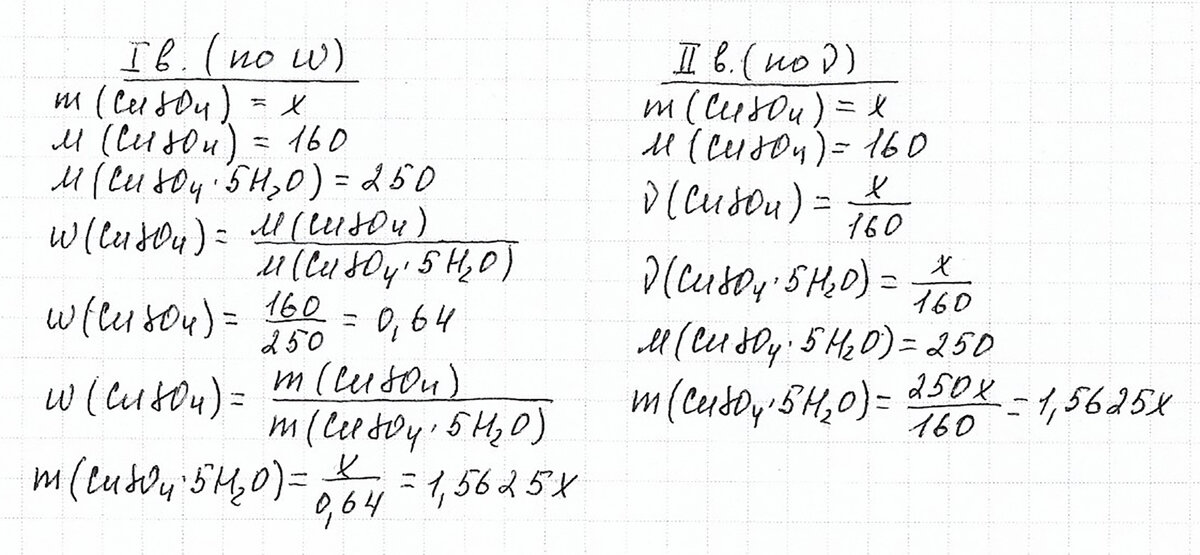 I в. (по w)
m (CuSO₄) = x
M (CuSO₄) = 160
M (CuSO₄·5H₂O) = 250
w (CuSO₄) = M (CuSO₄) / M (CuSO₄·5H₂O)
w (CuSO₄) = 160 / 250 = 0,64
w (CuSO₄) = m (CuSO₄) / m (CuSO₄·5H₂O)
m (CuSO₄·5H₂O) = x / 0,64 = 1,5625x
II в. (по ν)
m (CuSO₄) = x
M (CuSO₄) = 160
ν (CuSO₄) = x / 160
ν (CuSO₄·5H₂O) = x / 160
M (CuSO₄·5H₂O) = 250
m (CuSO₄·5H₂O) = 250x / 160 = 1,5625x